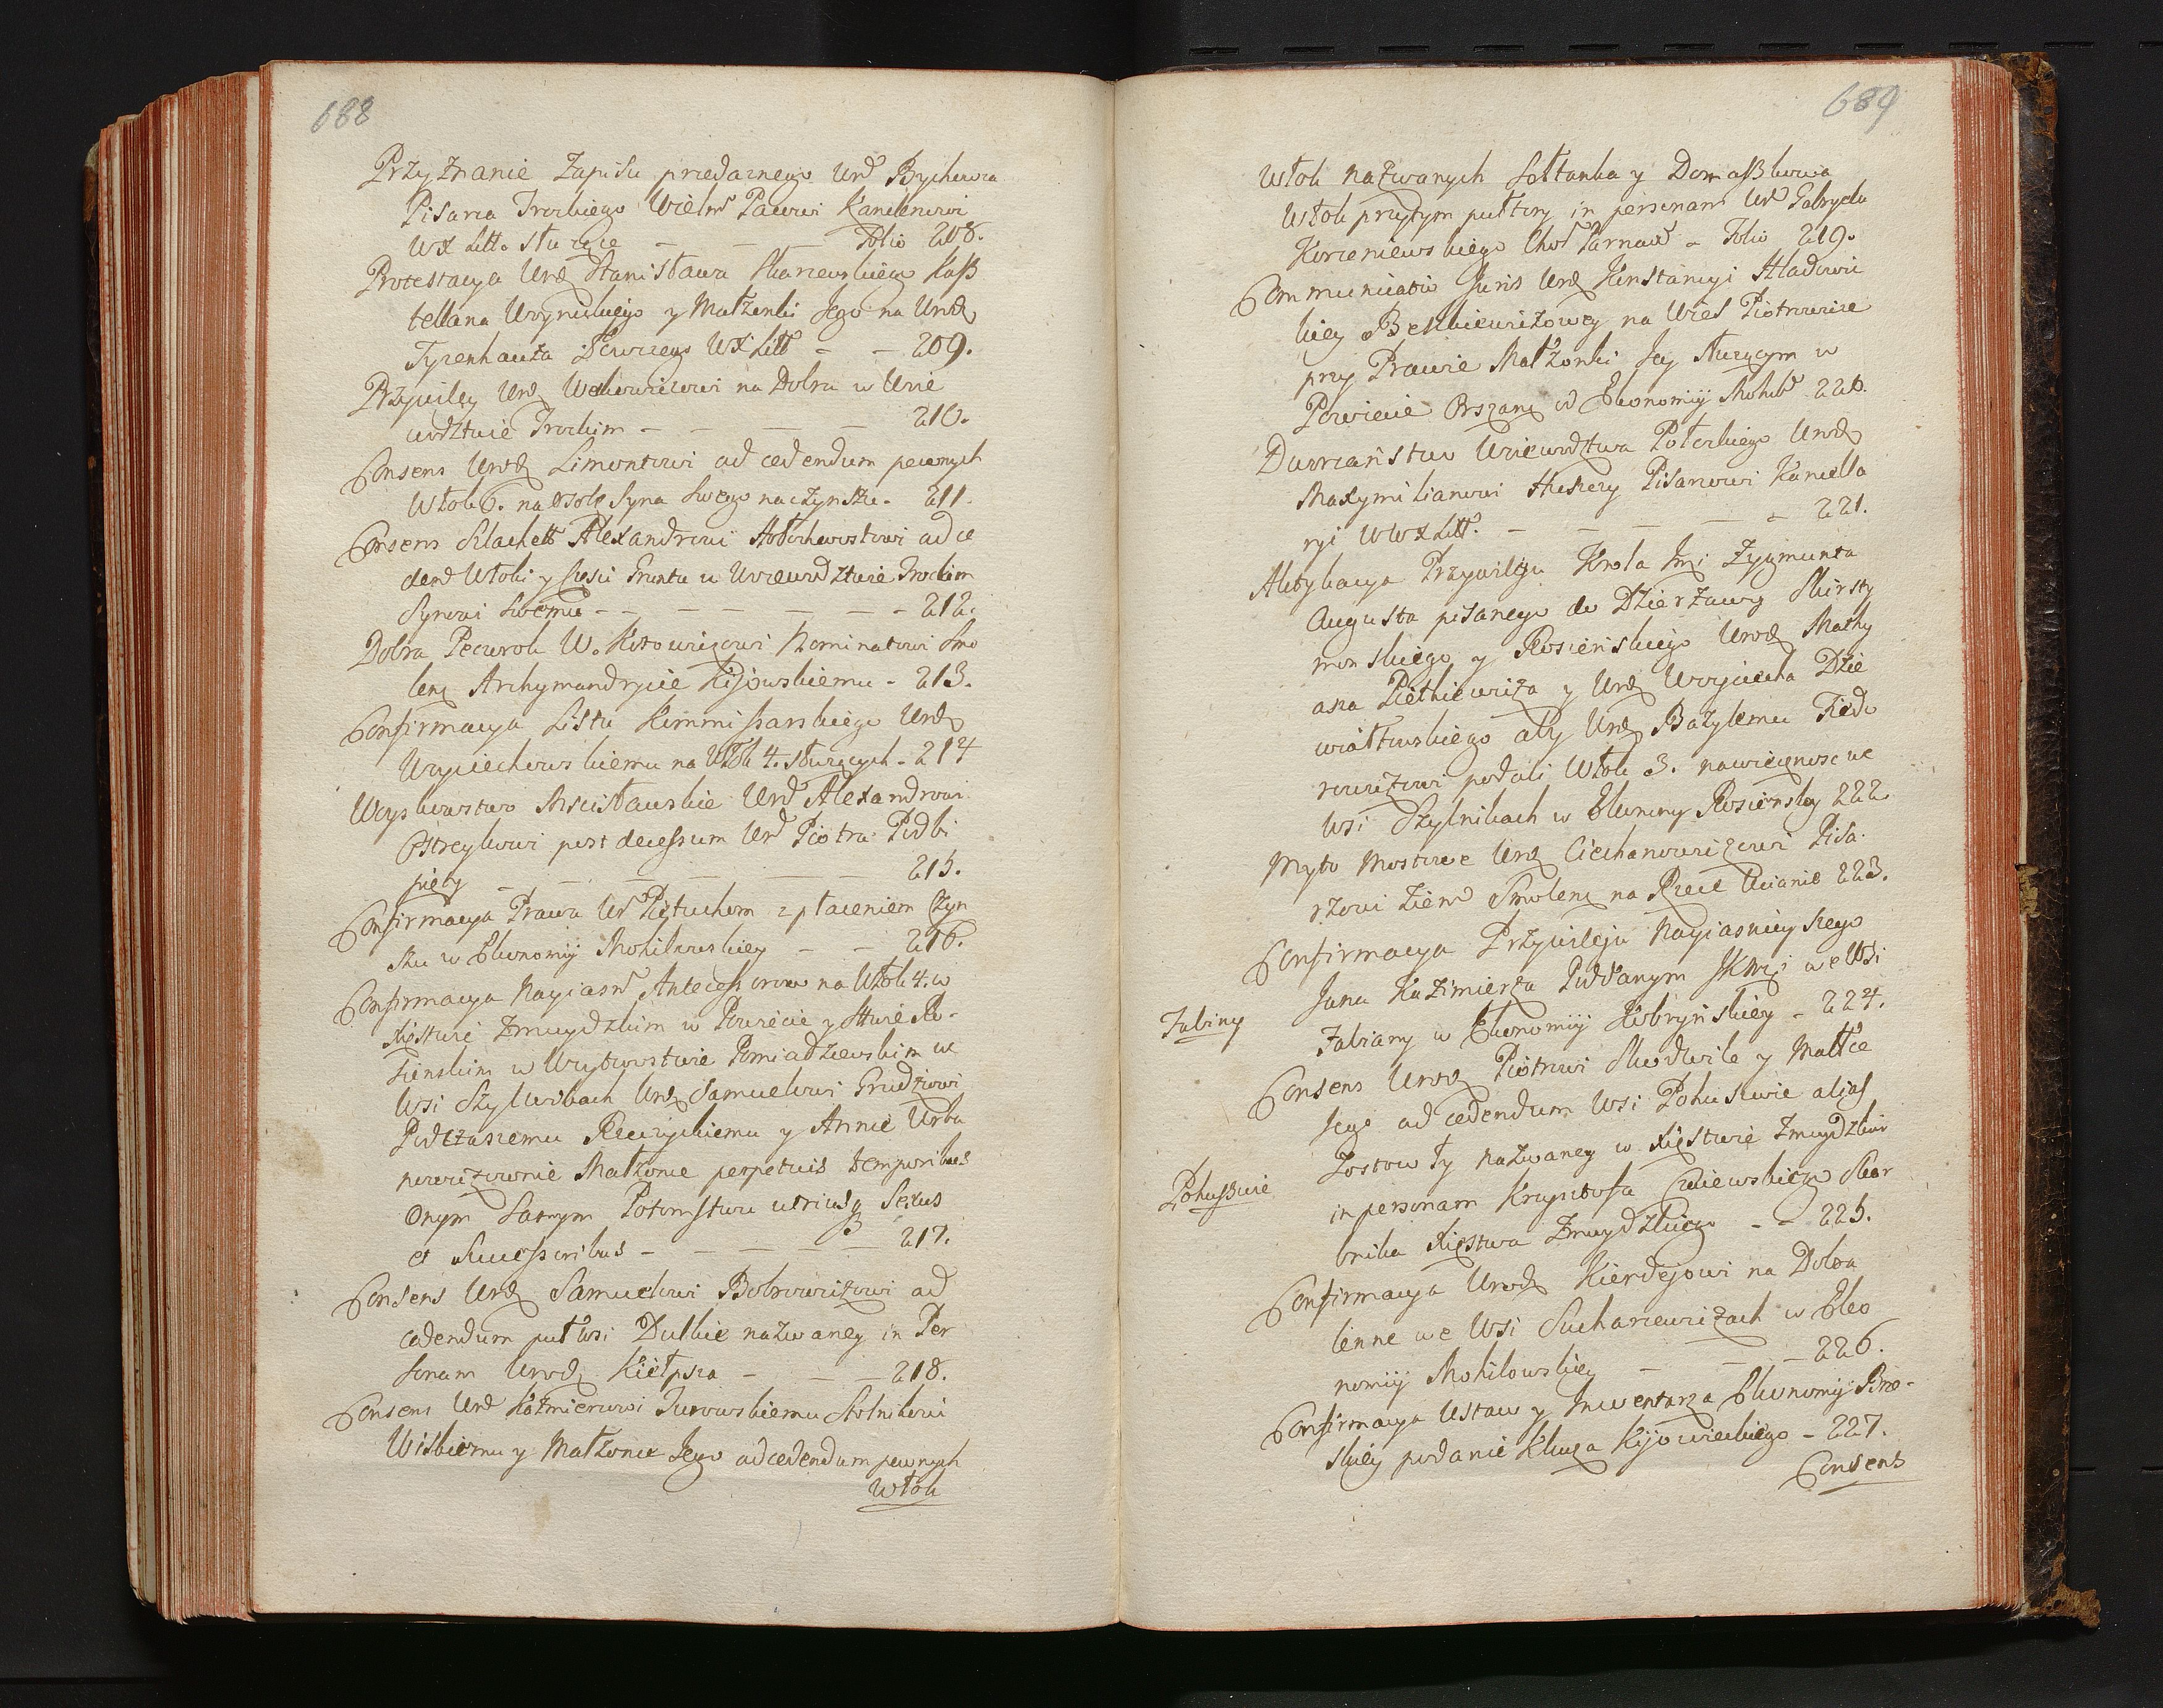 688
Przyznanie Zapisu przedaznego Urd Bychowca
Pisarza Trockiego Wielm Pacowi Kanclerzowi
WX Litt. służące — — — Folio 208.
Protestacya Urdz Stanisława Skarzewskiego Kaß
tellana Woynickiego y Małżonki Jego na Urodz
Tyzenhauza Łowczego WX Litt — — 209.
Przywiley Urdz Wolkowiczowi na Dobra w Wuie
wodztwie Trockim — — — — 210.
Consens Urodz Limontowi ad cedendum pewnych
Włok 6. na osobę Syna swego na czynszu. 211.
Consens Szlachett Alexandrowi ad ce
dend Włoki y sześci Gruntu w Woiewodztwie Trockim
Synowi Swemu — — — — — — 212.
Dobra Pecurok W. Kotowiczowi Nominatowi Smo
lenz Archymandrycie Kijowskiemu — 213.
Confirmacya Listu Kommissarskiego Urdz
Woyciechowskiemu na Włok 4. służących — 214
Woyskowstwo Mscisławskie Urd Alexandrowi
Ostreykowi post decessum Urd Piotra Podbi
pięty — — — — — — 215.
Confirmacya Prawa Ur Piętuchom z płaceniem Czyn
szu w Ekonomij Mohilowskiey — — 216.
Confirmacya Nayiasn Antecessorow na Włok 4. w
Xięstwie Zmuydzkim w Powiecie y Sttwie Ro-
sienskim w Woytowstwie Pomiadzewskim we
Wsi Szylwobach Urdz Samuelowi Grudzowi
Podczaszemu Rzeczyckiemu y Annie Urba
nowiczownie Małżonce perpetuis temporibus
Onym Samym Potomstwu utriusq Sexus
et Successoribus — — — — 217.
Consens Urdz Samuelowi Bobrowiczowi ad
cedendum puł wsi Dulkie nazwaney in Per
sonam Urodz Kiełpsza — — — 218.
Consens Urd Kazmierowi Turowskiemu Stolnikowi
Wiskiemu y Małżonce Jego ad cedendum pewnych
Włok
689
Włok nazwanych Sołtanka y Domaßkowa
Włok przytym puttory in personam Ur Gabryela
Korzeniewskiego Chor Parnaw — Folio 219.
Communicatio Juris Urdz Konstancyi Hladowic
kiey Beskiewiczowey na Wies Piotrowice
przy Prawie Małżonki Jey służącym w
Powiecie Orszanz w Ekonomij Mohil 220.
Dworzaństwo Woiewodztwa Połockiego Urodz
Maxymilianowi Huszczy Pisarzowi Kancella
ryi WWXLitt. — — — — — 221.
Aktykacya Przywileju Krola Jmci Zygmunta
Augusta pisanego do Dzierzawcy Skirsty
monskiego y Rosieńskiego Urodz Mathy
asza Pietkiewicza y Urdz Woyciecha Dzie
wiałtowskiego aby Urdz Bazylemu Fiedo
rowiczowi podali Włok 3. na wieczność we
Wsi Szylnikach w Ekonomy Rosienskey 222
Myto Mostowe Urdz Ciechanowiczowi Pisa.
rzowi Ziem Smolenz na Rzece Ucianie 223.
Confirmacya Przywileju Nayiasnieyszego
Jana Kazimierza Poddanym JKMci we Wsi
Jabiny
Jabiany w Ekonomij Kobryńskiey — 224.
Consens Urodz Piotrowi Skordwile y Małłce
Jego ad cedendum Wsi Pohuszwie alias
Zostowły nazwaney w Xięstwie Zmuydzkim
Pohußwie
in personam Krzysztofa Czaiewskiego Skar
bnika Xięstwa Zmuydzkiego — — 225.
Confirmacya Urodz Kierdejowi na Dobra
lenne we Wsi Sucharewiczach w Eko
nomij Mohilowskiey — — — 226.
Confirmacya Ustaw y Inwentarza Ekonomij Brze-
skiey podanie Klucza Kijowieckiego — 227.
Consens